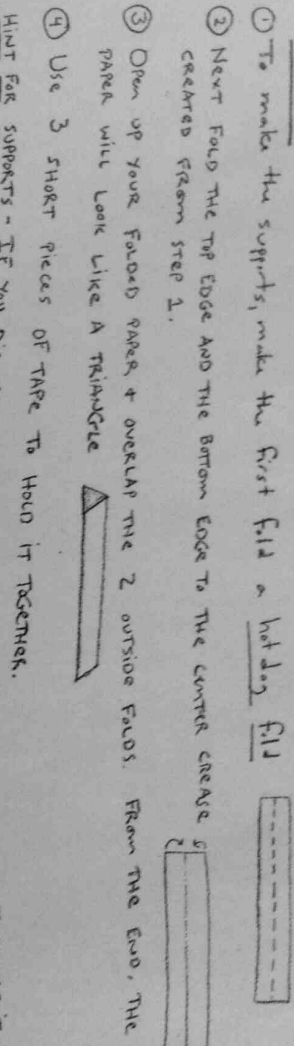 ① To make the supports, make the first fold a hot dog fold
② Next FOLD THE TOP EDGE AND THE BOTTOM EDGE TO THE CENTER CREASE
CREATED FROM STEP 1.
③ OPEN UP YOUR FOLDED PAPER + OVERLAP THE 2 OUTSIDE FOLDS. FROM THE END, THE
PAPER WILL LOOK LIKE A TRIANGLE
④ USE 3 SHORT PIECES OF TAPE TO HOLD IT TOGETHER.
HINT FOR SUPPORTS - IF YOU